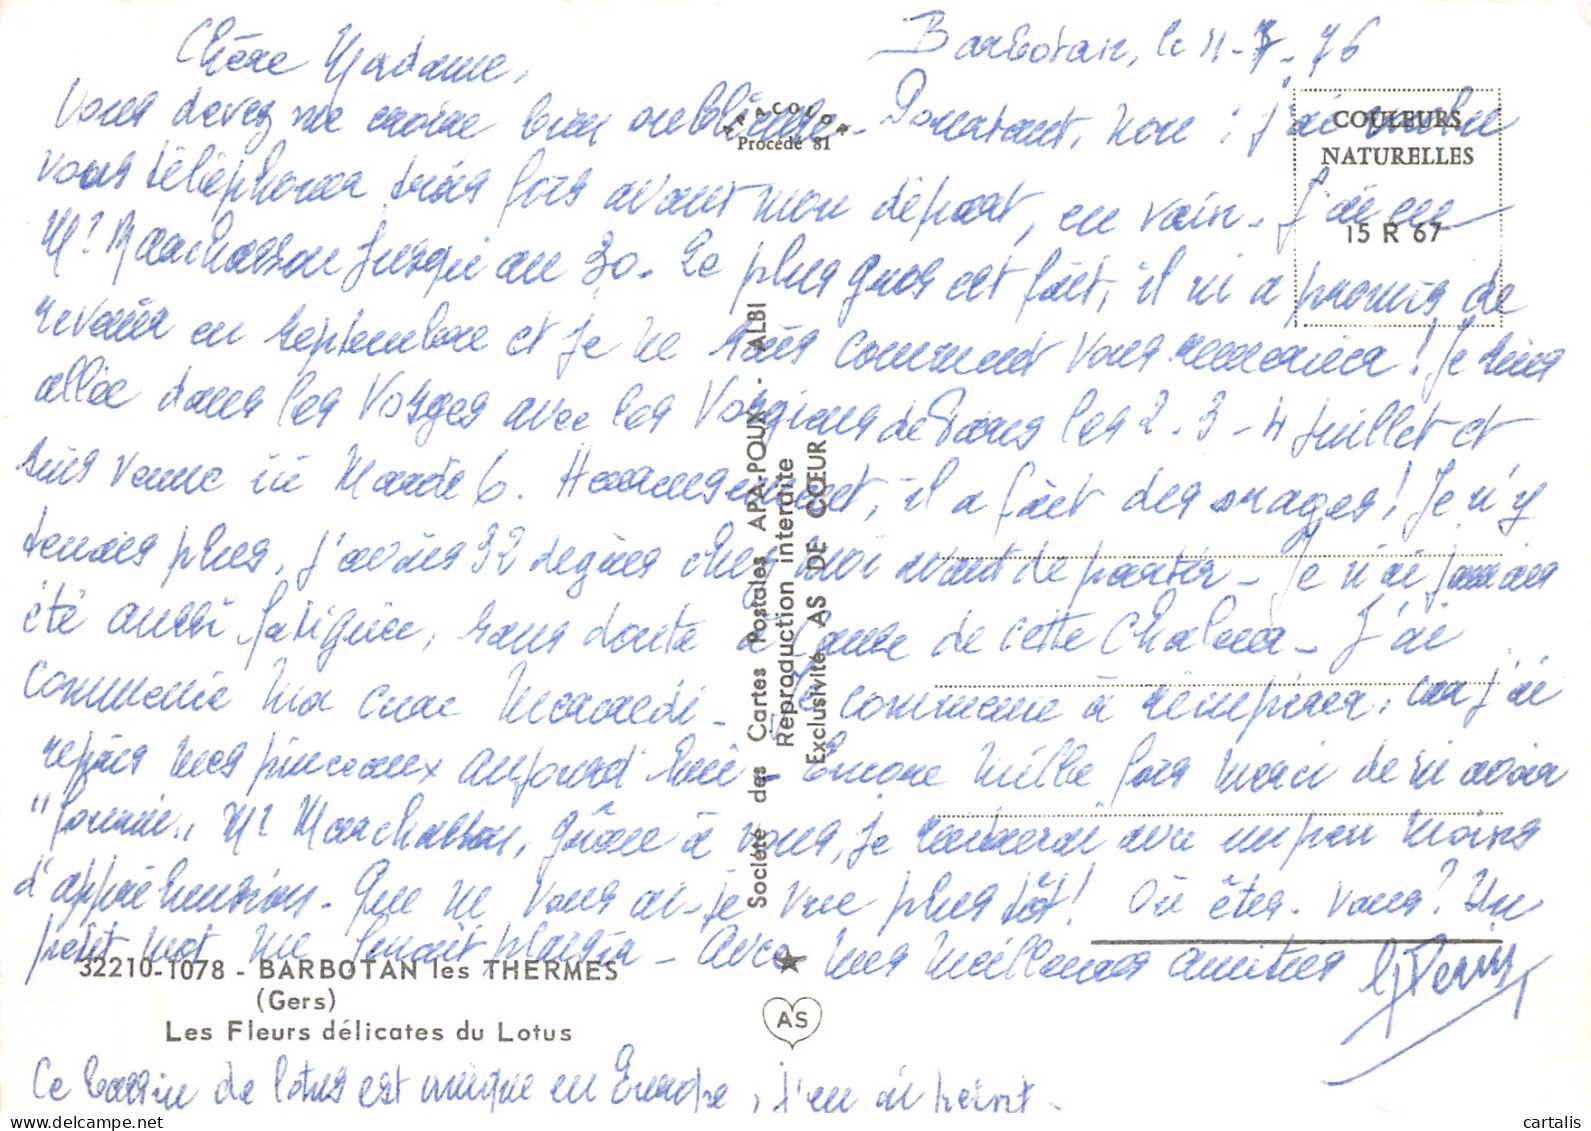 Barbotan, le 11-7-76
Chère Madame,
Vous devez me croire bien oublieuse - Pourtant, non : j'ai voulu
vous téléphoner trois fois avant mon départ, en vain - J'ai eu
Mr Marchasson jusqu'au 30. Le plus gros est fait, il m'a promis de
revenir en septembre et je ne sais comment vous remercier ! Je suis
allée dans les Vosges avec les Vosgiens de Paris les 2-3-4 juillet et
suis venue ici Mardi 6. Heureusement, il a fait des orages ! Je n'y
tenais plus, j'avais 32 degrés chez moi avant de partir - Je n'ai jamais
été aussi fatiguée, sans doute à cause de cette chaleur - J'ai
commencé ma cure Mercredi - Je commence à respirer, car j'ai
repris mes pinceaux aujourd'hui - Encore mille fois merci de m'avoir
"fourni" Mr Marchasson, grâce à vous, je rentrerai avec un peu moins
d'appréhension - Que ne vous ai-je vue plus tôt ! Où êtes-vous ? Un
petit mot me ferait plaisir - Avec mes meilleures amitiés
Ce bassin de lotus est unique en Europe, j'en ai peint -
APACOLOR
Procédé 81
COULEURS
NATURELLES
15 R 67
Société des Cartes Postales APA-POUX - ALBI
Reproduction interdite
Exclusivité AS DE CŒUR
32210-1078 - BARBOTAN les THERMES
(Gers)
Les Fleurs délicates du Lotus
AS
www.delcampe.net
cartalis